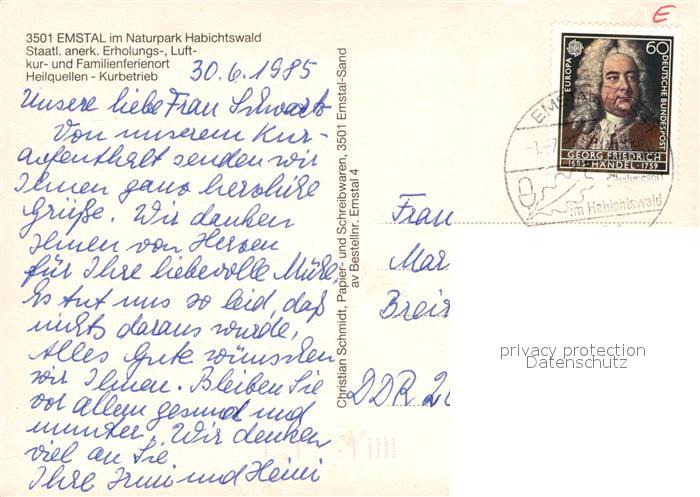 3501 EMSTAL im Naturpark Habichtswald
Staatl. anerk. Erholungs-, Luft-
kur- und Familienferienort
Heilquellen - Kurbetrieb
30.6.1985
Unsere liebe Frau Schwarts
Von unserem Kur-
aufenthalt senden wir
Ihnen ganz herzliche
Grüße. Wir danken
Ihnen von Herzen
für Ihre liebevolle Mühe,
Es tut uns so leid, daß
nichts daraus wurde,
Alles Gute wünschen
wir Ihnen. Bleiben Sie
vor allem gesund und
munter. Wir denken
viel an Sie
Ihre Irmi und Heini
Christian Schmidt, Papier- und Schreibwaren, 3501 Emstal-Sand
av Bestellnr. Emstal 4
E
EUROPA
60
DEUTSCHE BUNDESPOST
GEORG FRIEDRICH
1685 HÄNDEL 1759
EMSTAL
im Habichtswald
Frau
Mar
Breit
DDR 20
privacy protection
Datenschutz